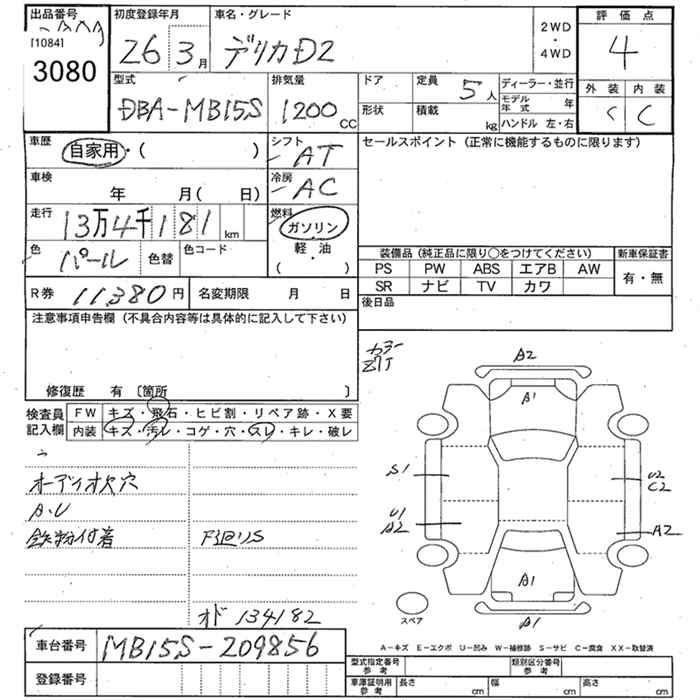 出品番号 初度登録年月 車名・グレード 評価点
[1084] 26 3月 デリカD2 2WD・4WD 4
3080
型式 排気量 ドア 定員 5人 ディーラー・並行 外装 内装
DBA-MB15S 1200cc 形状 積載 kg モデル年式 年 C
ハンドル 左・右
車歴 自家用・( ) シフト AT セールスポイント (正常に機能するものに限ります)
車検 年 月( 日) 冷房 AC
走行 13万4千181km 燃料 ガソリン・軽・油( )
色 パール 色替 色コード
装備品 (純正品に限り○をつけてください) 新車保証書
PS PW ABS エアB AW 有・無
SR ナビ TV カワ
R券 11,380円 名変期限 月 日 後日品
注意事項申告欄 (不具合内容等は具体的に記入して下さい)
修復歴 有 〔箇所 〕
検査員記入欄 FW キズ・飛石・ヒビ割・リペア跡・X要
内装 キズ・汚レ・コゲ・穴・スレ・キレ・破レ
オーディオ欠穴
A.U
鉄粉付着 F廻りS
オド 134182
A2
A1
S1
U2
C2
U1
A2
A2
A1
A1
スペア
A-キズ E-エクボ U-凹み W-補修跡 S-サビ C-腐食 XX-取替済
車台番号 MB15S-209856
登録番号
型式指定番号 参考 類別区分番号 参考
車庫証明用 参考 長さ cm 幅 cm 高さ cm